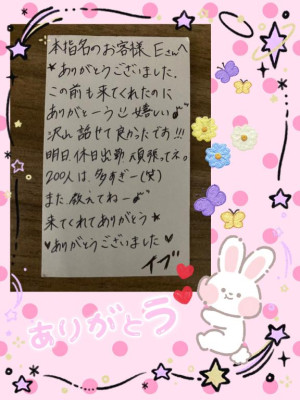 本指名のお客様 Eさんへ
★ありがとうございました、
この前も来てくれたのに
ありがとーう 嬉しい
沢山 話せて良かったです!!!
明日、休日出勤 頑張ってネ。
200人は、多すぎー(笑)
また 教えてねー
来てくれてありがとう★
♥ありがとうございました♥
イブ
ありがとう